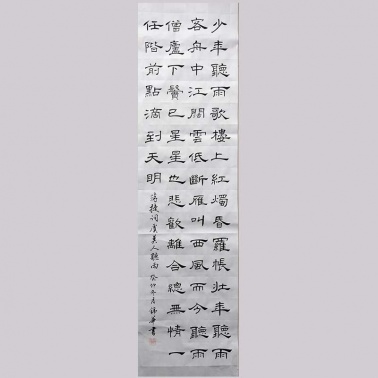 少年聽雨歌樓上紅燭昏羅帳壯年聽雨
客舟中江闊雲低斷雁叫西風而今聽雨
僧廬下鬢已星星也悲歡離合總無情一
任階前點滴到天明
蔣捷詞虞美人聽雨 癸卯 書